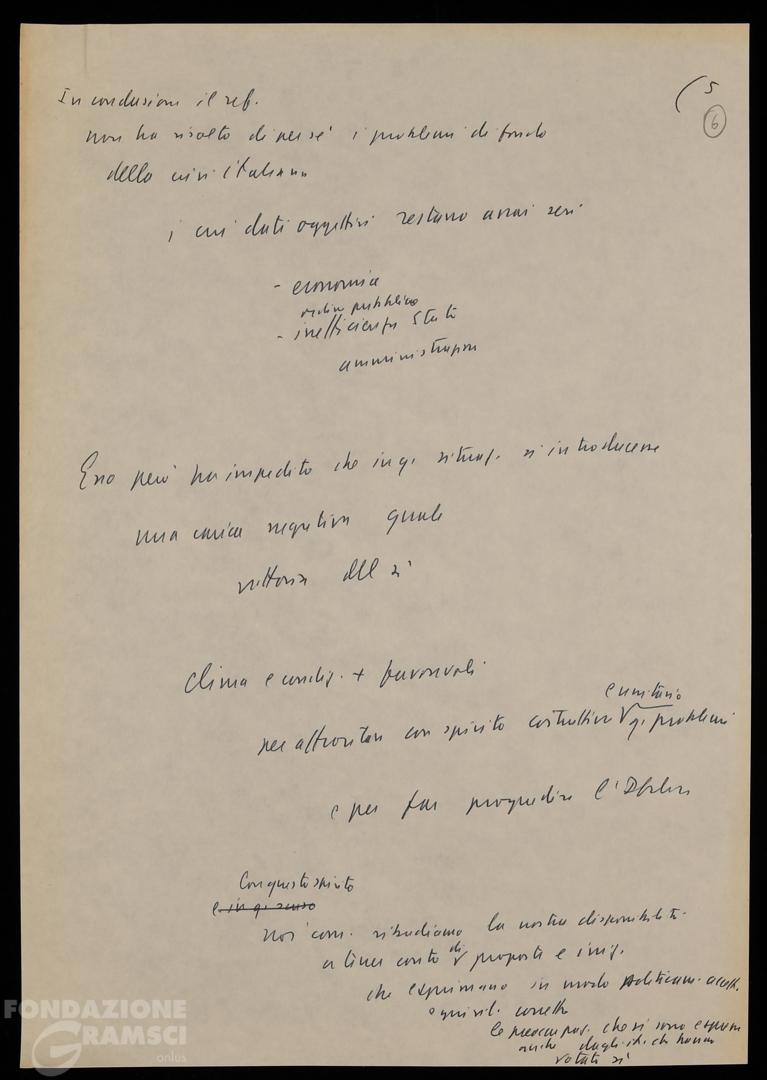 ( 5
6
In conclusione il ref.
non ha risolto di per sé i problemi di fondo
della crisi italiana
i cui dati oggettivi restano assai seri
- economia
ordine pubblico
- inefficienza Stato
amministrazione
Esso però ha impedito che in q. situaz. si introducesse
una carica negativa quale
vittoria del sì
clima e condiz. + favorevoli
e unitario
per affrontare con spirito costruttivo q. problemi
e per far progredire l'Italia
Con questo spirito
e in q. senso
noi com. ribadiamo la nostra disponibilità
a tener conto di proposte e iniz.
che esprimano in modo politicam.
corretto
le preoccupaz. che si sono espresse
anche dagli it. che hanno
votato sì
FONDAZIONE
GRAMSCI
onlus